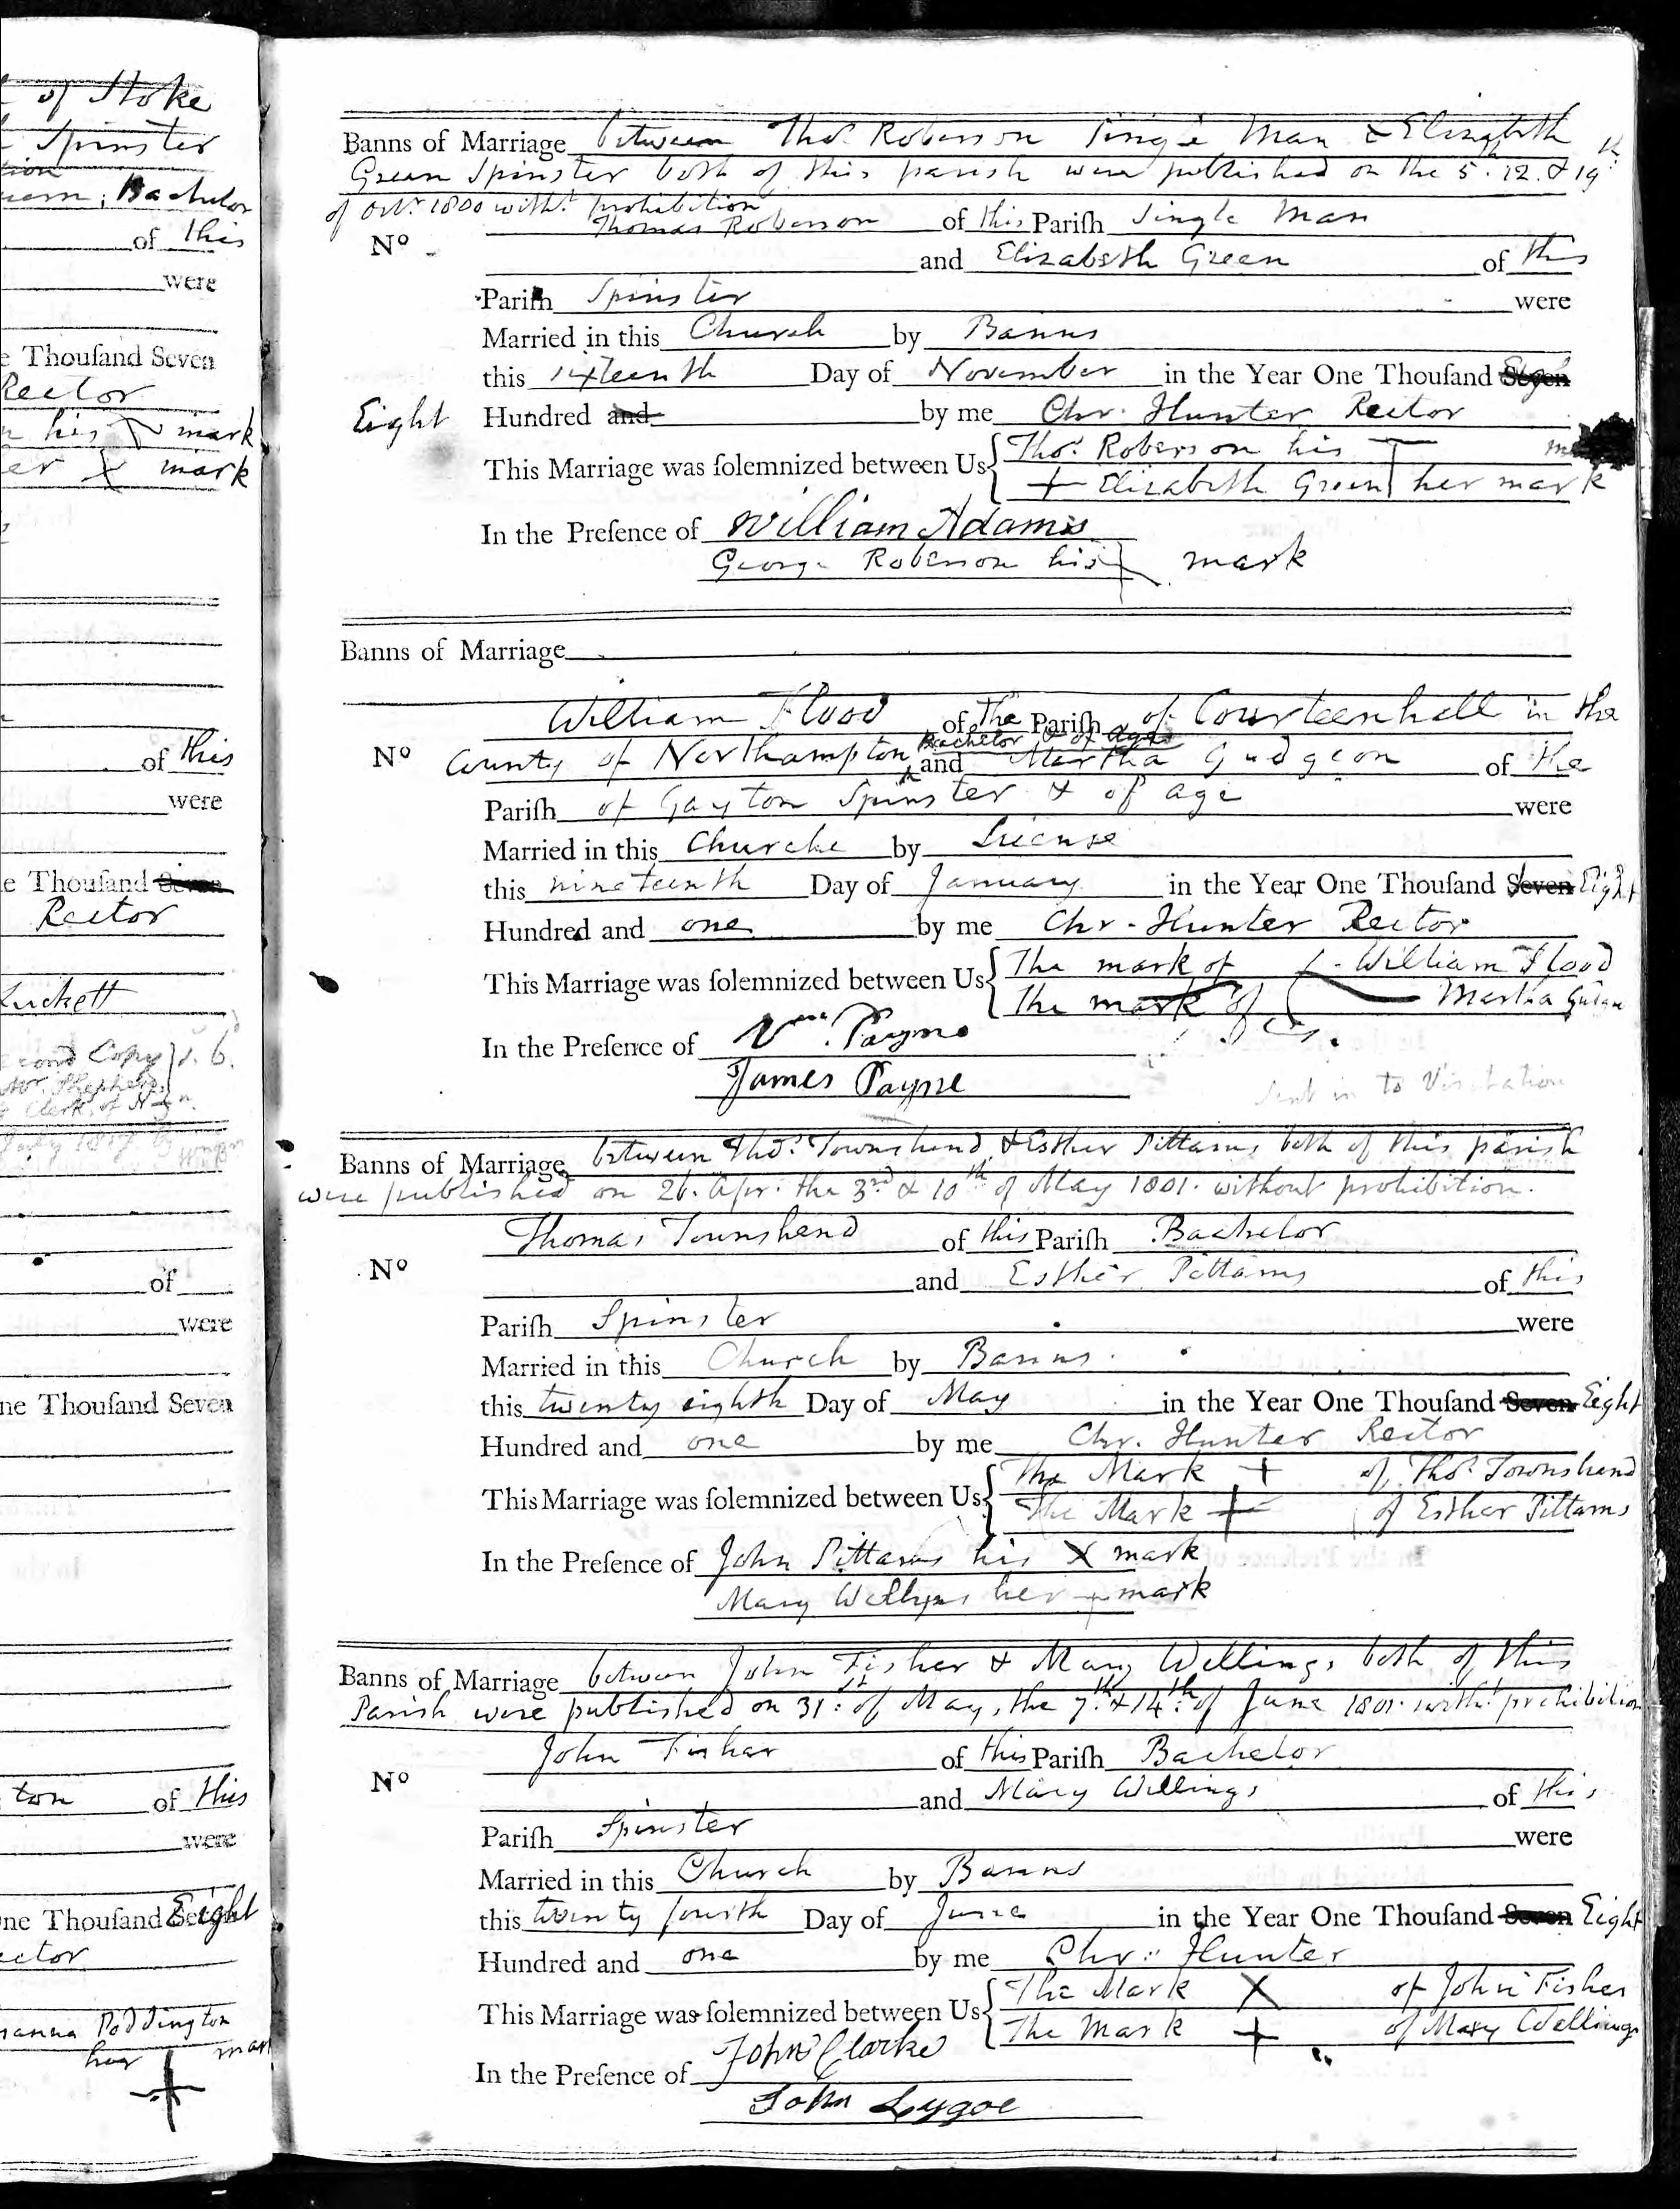 of Stoke
Spinster
Bachelor
of this
were
Thouſand Seven
Rector
his mark
mark
of this
were
Thouſand Seven
Rector
Luckett
cond Copy 1. 6.
Mr. Shepherd
Clerk of
of
were
ne Thouſand Seven
ton of this
were
ne Thouſand Seven Eight
ector
anna Poddington
her mar
Banns of Marriage between Thos. Roberson Single Man & Elizabeth
Green Spinster both of this parish were published on the 5th. 12. & 19th.
of Octr. 1800 witht. prohibition
Thomas Roberson of this Pariſh Single Man
No
and Elizabeth Green of this
Pariſh Spinster were
Married in this Church by Banns
this sixteenth Day of November in the Year One Thouſand Seven
Eight Hundred and by me Chr. Hunter Rector
Thos. Roberson his
This Marriage was ſolemnized between Us
+ Elizabeth Green her mark
In the Preſence of William Adams
George Roberson his mark
Banns of Marriage
William Flood of the Pariſh of Courteenhall in the
Bachelor & of age
No County of Northampton and Martha Gudgeon of the
Pariſh of Gayton Spinster & of age were
Married in this Church by License
this nineteenth Day of January in the Year One Thouſand Seven Eight
Hundred and one by me Chr. Hunter Rector
The mark of William Flood
This Marriage was ſolemnized between Us
The mark of Martha
In the Preſence of Wm. Payne
James Payne
Sent in to Visitation
Banns of Marriage between Thos. Townshend & Esther Pittams both of this parish
were published on 26. Apr. the 3rd. & 10th of May 1801. without prohibition.
Thomas Townshend of this Pariſh Bachelor
No
and Esther Pittams of this
Pariſh Spinster were
Married in this Church by Banns
this twenty eighth Day of May in the Year One Thouſand Seven Eight
Hundred and one by me Chr. Hunter Rector
The Mark + of Thos. Townshend
This Marriage was ſolemnized between Us
The Mark + of Esther Pittams
In the Preſence of John Pittams his X mark
Mary her + mark
Banns of Marriage between John Fisher & Mary Wellings both of this
Parish were published on 31st. of May, the 7th. & 14th. of June 1801. witht. prohibition
John Fisher of this Pariſh Bachelor
No
and Mary Wellings of this
Pariſh Spinster were
Married in this Church by Banns
this twenty fourth Day of June in the Year One Thouſand Seven Eight
Hundred and one by me Chr. Hunter
The Mark X of John Fisher
This Marriage was ſolemnized between Us
The Mark + of Mary Wellings
In the Preſence of John Clarke
John Lygoe